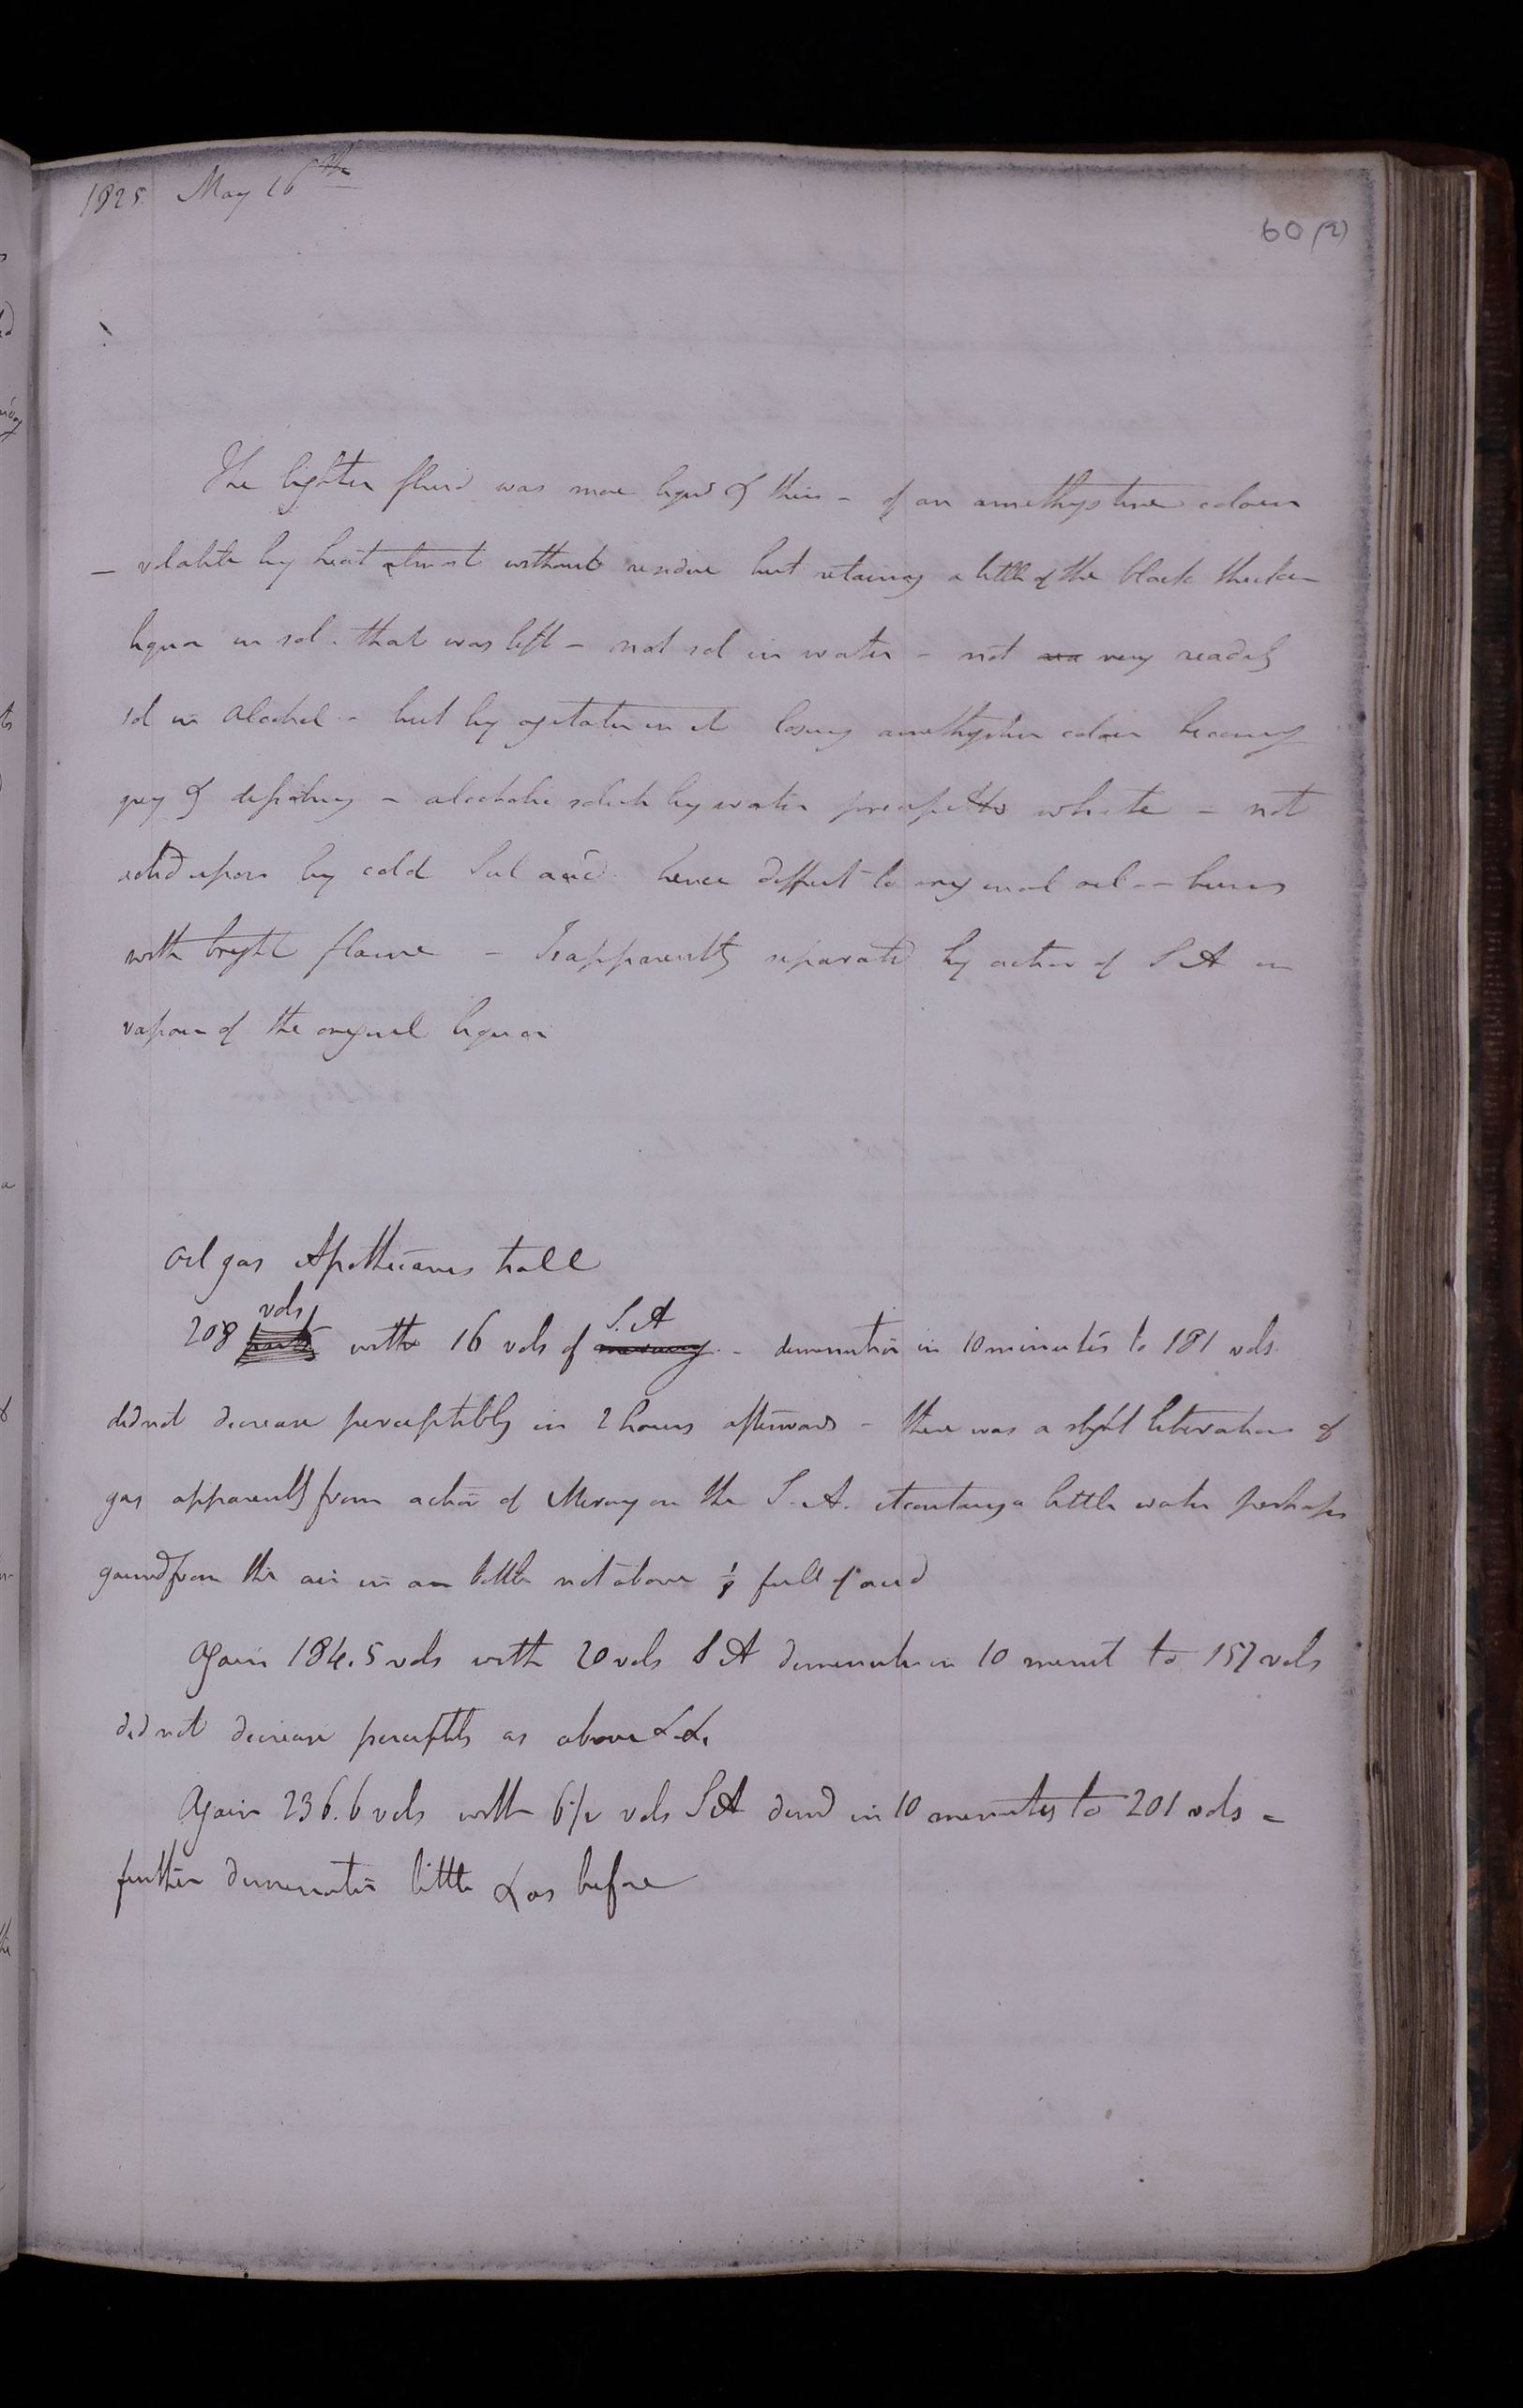 1825 May 16th
60 (2)
The lighter fluid was more liquid & thin - of an amethystine colour
- volatile by heat almost without residue but retaining a little of the black thicker
liquor in sol. that was left - not sol in water - not very readily
sol in alcohol - but by agitation in it losing amethystine colour becoming
grey & depositing - alcoholic solution by water precipitates white - not
acted upon by cold Sul acid. hence different to original oil - burns
with bright flame - Is apparently separated by action of S A on
vapour of the original liquor
Oil gas Apothecaries hall
208 vols with 16 vols of S. A - diminution in 10 minutes to 181 vols.
did not decrease perceptibly in 2 hours afterwards - there was a slight liberation of
gas apparently from action of Mercury on the S. A. it containing a little water perhaps
gained from the air in a bottle not above 1/8 full of acid
Again 184.5 vols with 20 vols S A diminution in 10 minut to 157 vols
did not decrease perceptibly as above &c.
Again 236.6 vols with 6 1/2 vols S A dimd in 10 minutes to 201 vols -
further diminution little & as before